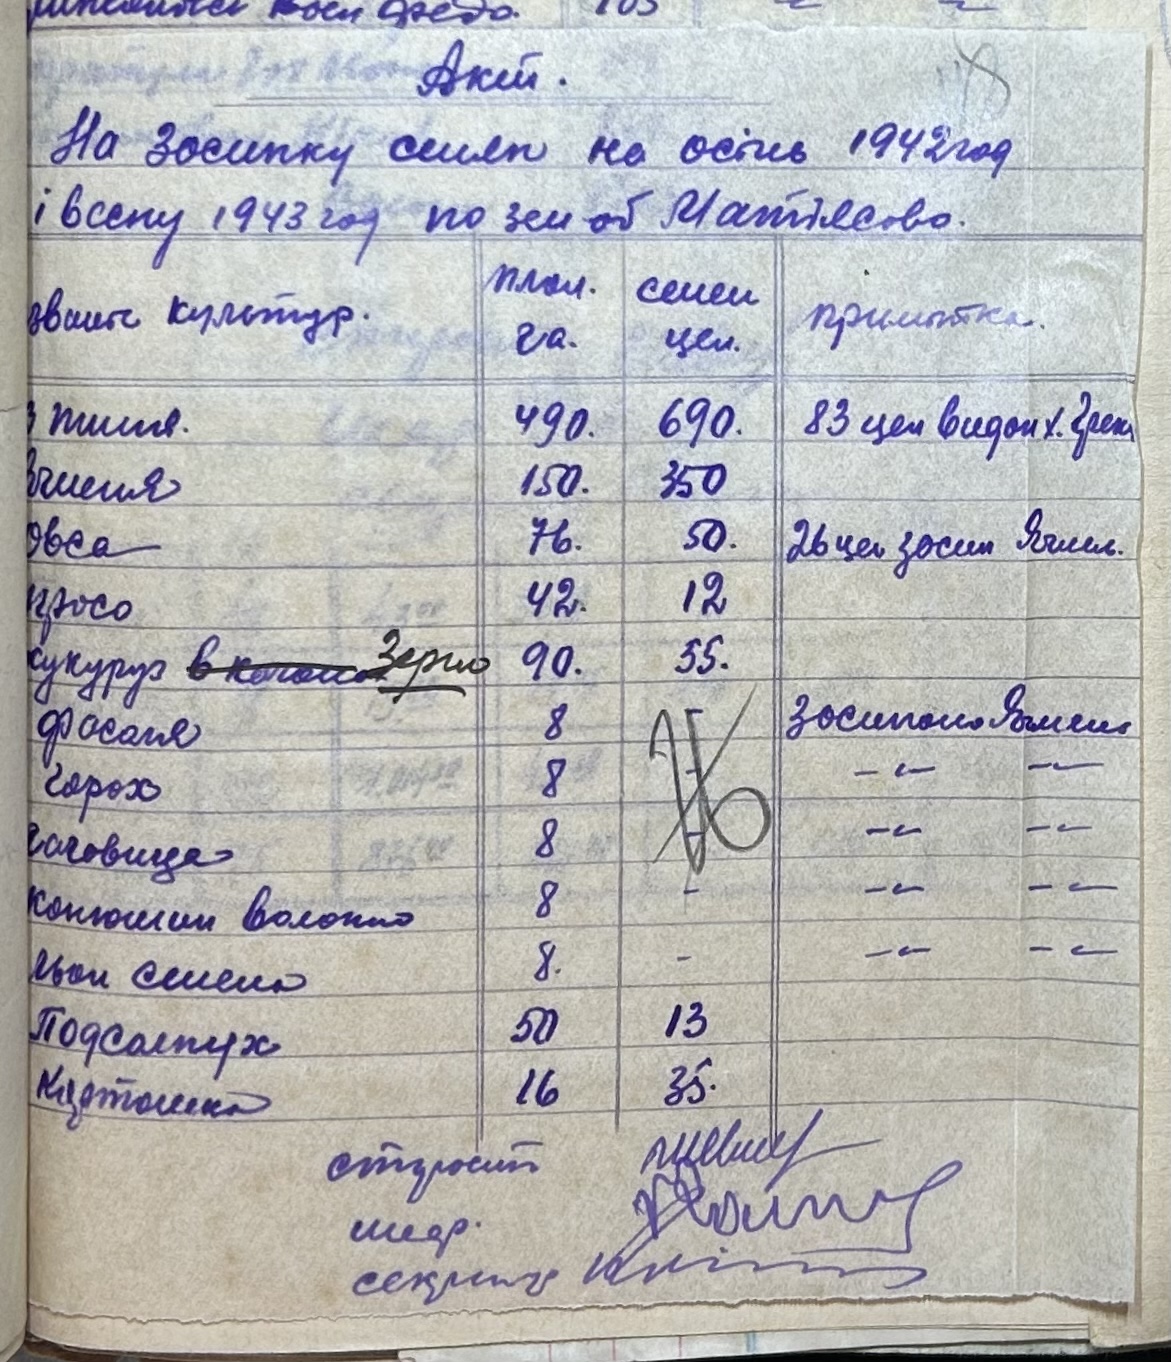 105
Акт.
На засипку семян на осінь 1942 год
і весну 1943 год по зем об Матіясово.
звание культур. площ. га. семен цен. примітка.
пшиня. 490. 690. 83 цен видан х.
ячменя 150. 350
овса 76. 50. 26 цен засип Ячмен.
просо 42. 12
кукуруз Зерно 90. 55.
фасоля 8 - засипано Ячмень
горох 8 - -〃- -〃-
чачовица 8 - -〃- -〃-
конюшин волокно 8 - -〃- -〃-
льон семена 8. - -〃- -〃-
Подсолнух 50 13
Картошка 16 35.
старост
агр.
секретар